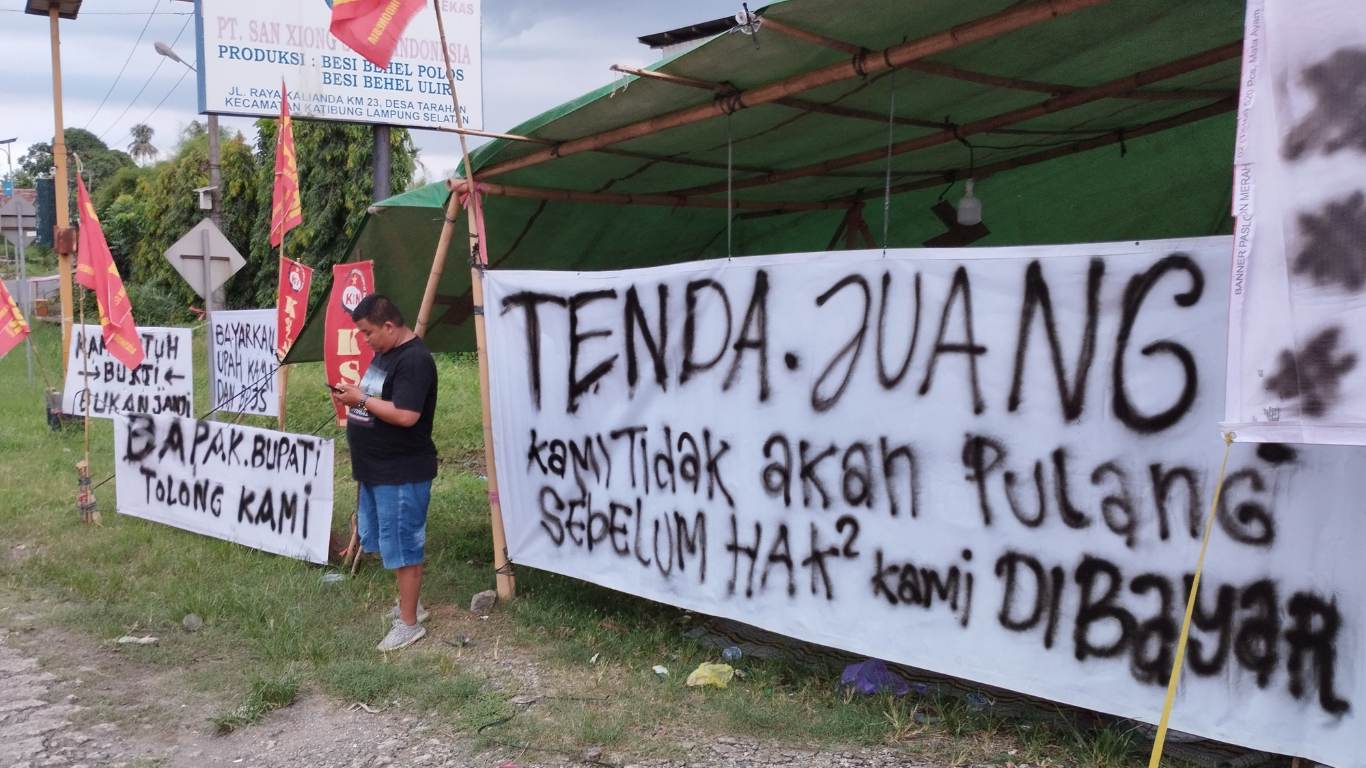 EKAS
PT. SAN XIONG
INDONESIA
PRODUKSI : BESI BEHEL POLOS
BESI BEHEL ULIR
JL. RAYA KALIANDA KM 23, DESA TARAHAN
KECAMATAN KATIBUNG LAMPUNG SELATAN
BUKTI
BUKAN JANJI
BAYARKAN
UPAH KAMI
DAN BPJS
BAPAK.BUPATI
TOLONG KAMI
TENDA.JUANG
KAMI TIDAK AKAN PULANG
SEBELUM HAK² KAMI DIBAYAR
BANNER PASLON MERAH
Mata Ayam